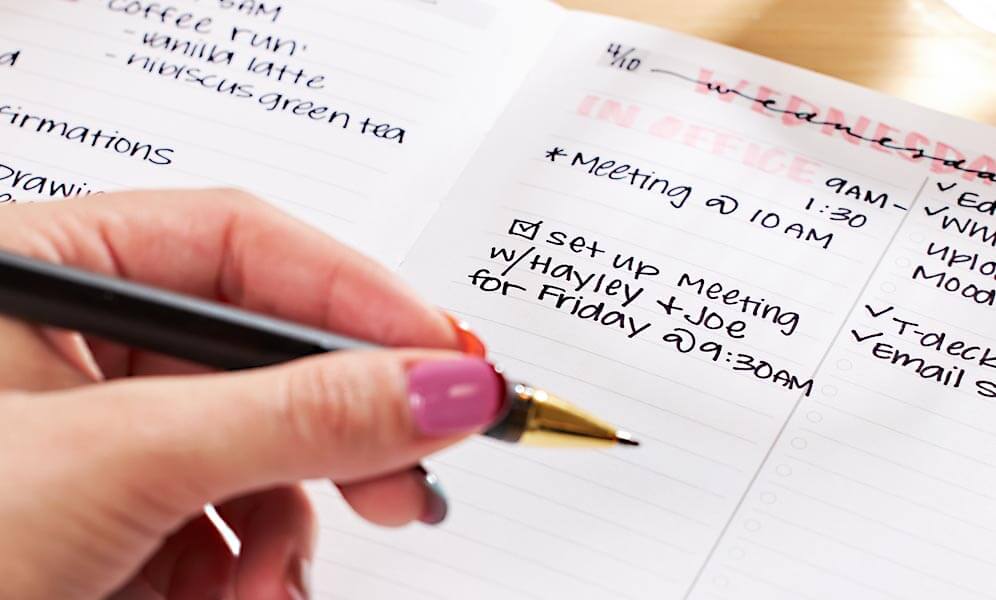 5AM
coffee run.
- vanilla latte
- hibiscus green tea
firmations
Drawin
4/10
WEDNESDA
wednesda
IN OFFICE
9AM-
1:30
* Meeting @ 10 AM
☑ set up meeting
w/Hayley + Joe
for Friday @9:30AM
✓ Ed
✓ WW
uplo
Mood
✓ T-deck
✓ Email s